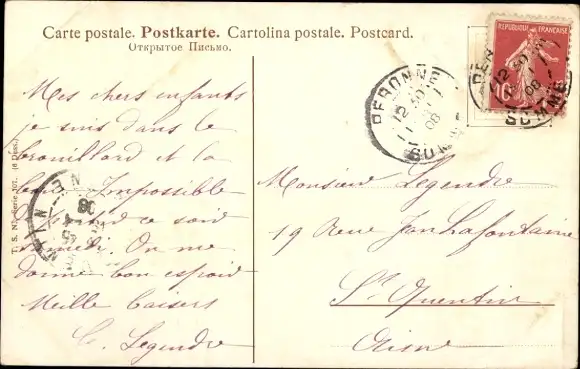 Carte postale. Postkarte. Cartolina postale. Postcard.
Открытое Письмо.
REPUBLIQUE FRANÇAISE
PERONNE
12 30
11
08
SOMME
PERONNE
12 30
11
08
SOMME
Mes chers enfants
je suis dans le
brouillard et la
Impossible
ce soir
On me
donne bon espoir
Meille baisers
C. Legendre
T. S. N. Serie
08
Monsieur Legendre
19 Rue Jean Lafontaine
St Quentin
Aisne